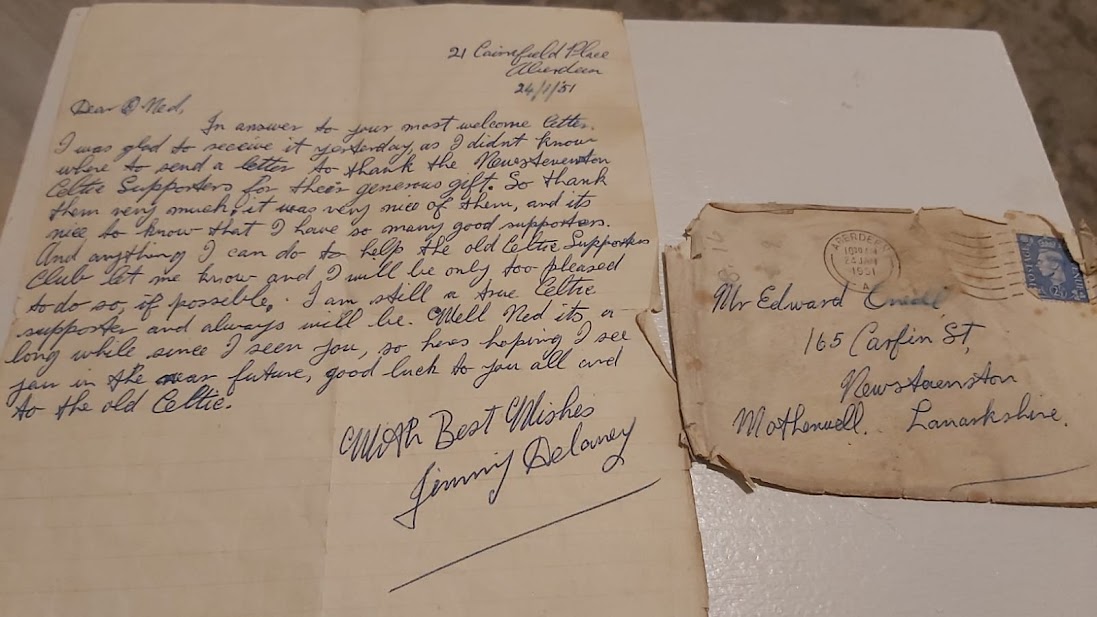 21 Cairnfield Place
Aberdeen
24/1/51
Dear Ned,
In answer to your most welcome letter.
I was glad to receive it yesterday, as I didnt know
where to send a letter to thank the Newstevenston
Celtic Supporters for their generous gift. So thank
them very much, it was very nice of them, and its
nice to know that I have so many good supporters.
And anything I can do to help the old Celtic Supporters
Club let me know and I will be only too pleased
to do so, if possible. I am still a true Celtic
supporter and always will be. Well Ned its a
long while since I seen you, so heres hoping I see
you in the near future, good luck to you all and
to the old Celtic.
With Best Wishes
Jimmy Delaney
ABERDEEN
24 JAN
1951
A
POSTAGE
Mr Edward
165 Carfin St,
Newstevenston
Motherwell. Lanarkshire.